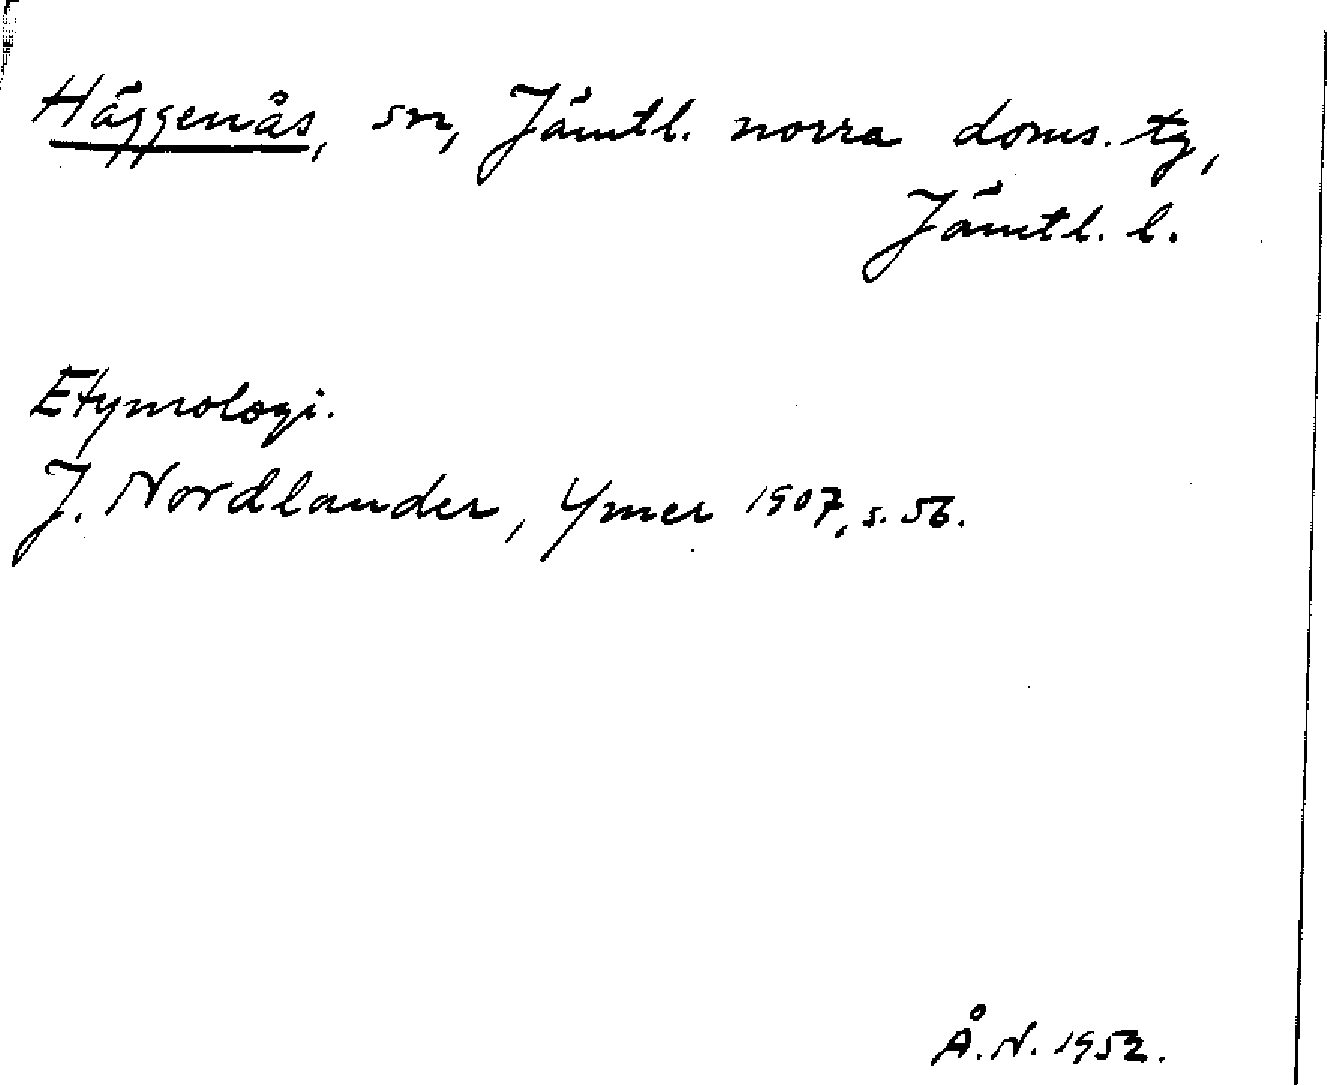 Häggenås, sn, Jämtl. norra doms. tg,
Jämtl. l.
Etymologi.
J. Nordlander, Ymer 1907, s. 56.
Å. N. 1952.